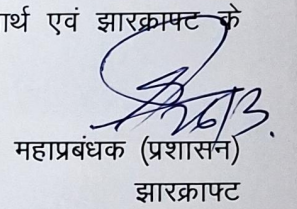 र्थ एवं झारक्राफ्ट के
26/3.
महाप्रबंधक (प्रशासन)
झारक्राफ्ट